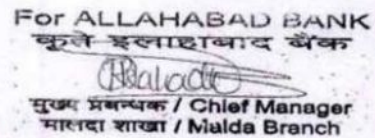 For ALLAHABAD BANK
कृते इलाहाबाद बैंक
मुख्य प्रबन्धक / Chief Manager
मालदा शाखा / Malda Branch